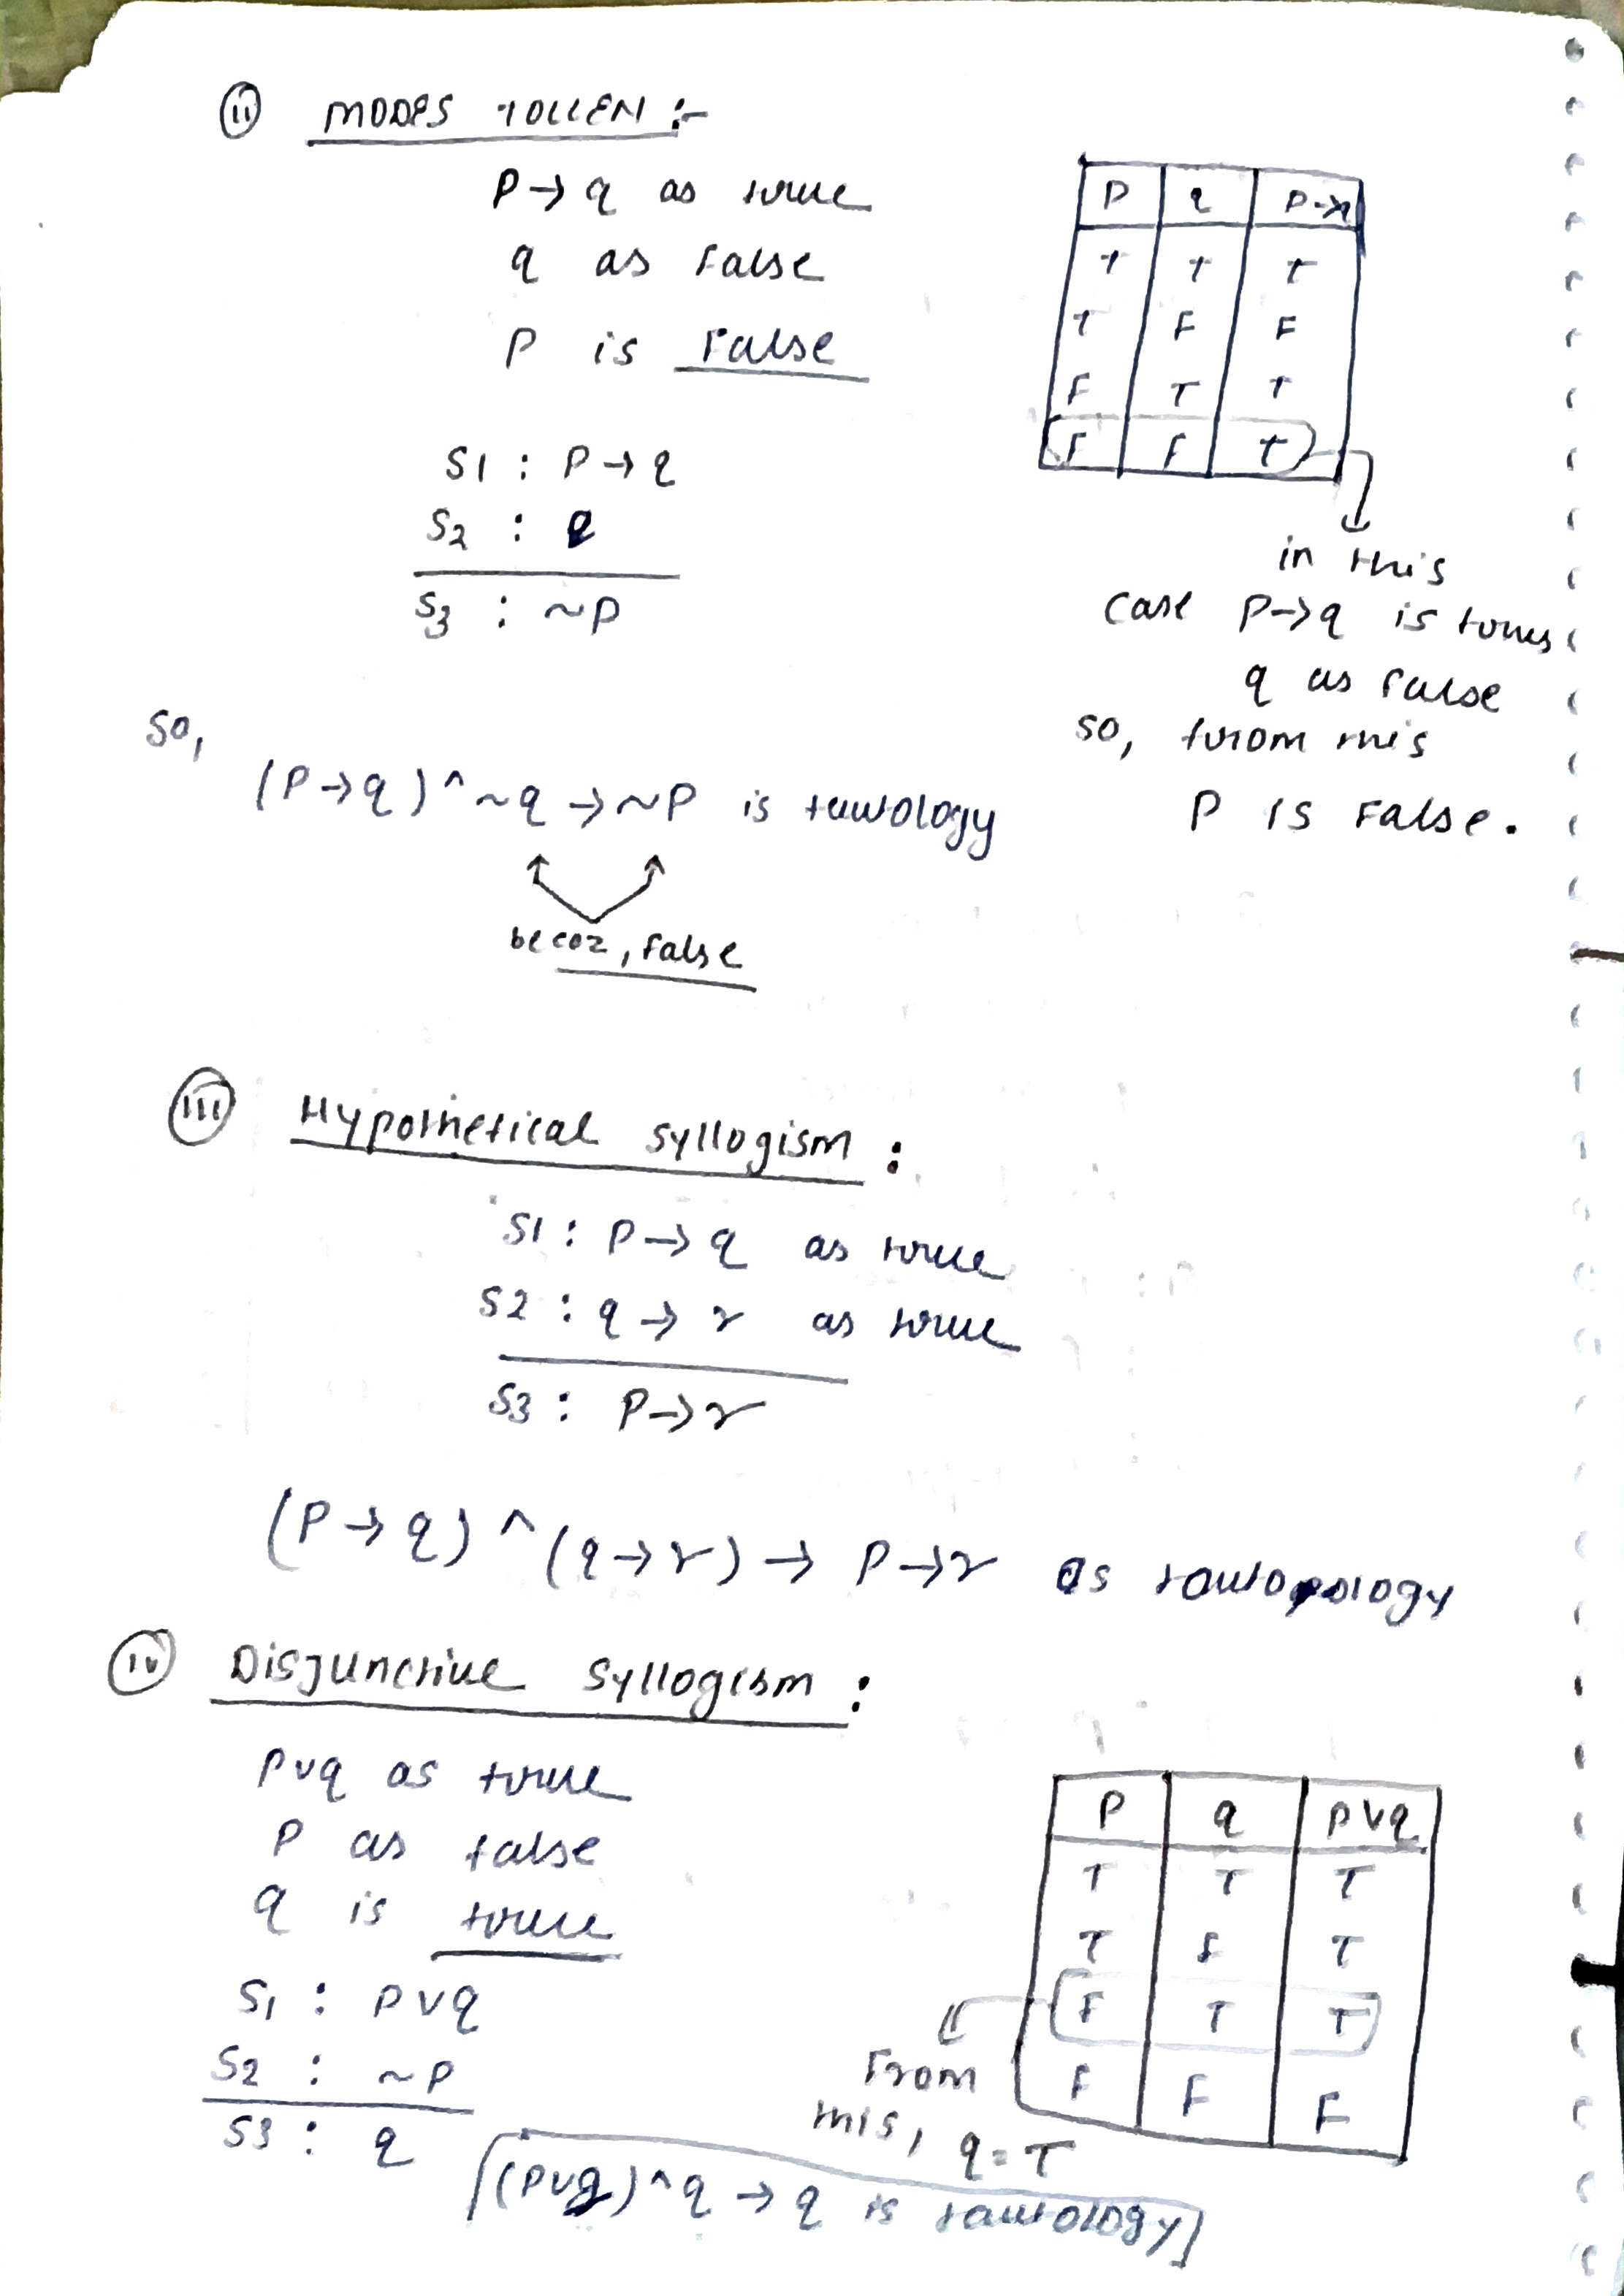 (ii) MODES TOLLEN :-
P → q as true
q as False
P is False
S1 : P → q
S2 : q
S3 : ~P
P q P→q
T T T
T F F
F T T
F F T
in this
case P→q is true
q as false
so, from this
P is False.
So,
(P → q) ^ ~q → ~P is tautology
becoz, false
(iii) Hypothetical syllogism :
S1 : P → q as true
S2 : q → r as true
S3 : P → r
(P → q) ^ (q → r) → P → r as tautology
(iv) Disjunctive Syllogism :
P v q as true
P as false
q is true
S1 : P v q
S2 : ~P
S3 : q
P q P v q
T T T
T F T
F T T
F F F
From
this, q = T
[(P v q) ^ q → q is tautology]